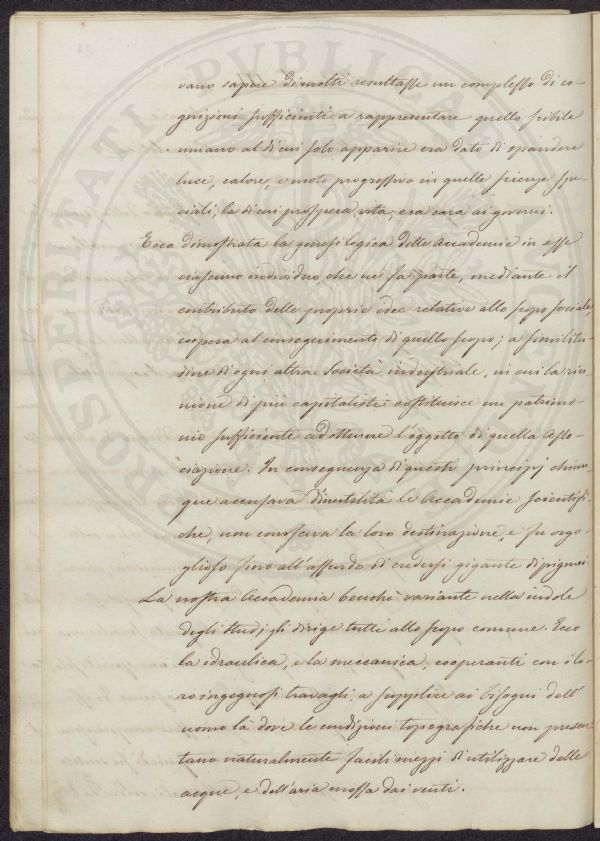 vano sapere di molti resultasse un complesso di co-
gnizioni sufficienti a rappresentare quello scibile
umano al di cui solo apparire era dato di spandere
luce, calore, e moto progressivo in quelle scienze spe-
ciali, la di cui prospera vita, era cara ai governi.
Ecco dimostrata la genesi logica delle Accademie in esse
ciascuno individuo, che ne fa parte, mediante il
contributo delle proprie idee relative allo scopo sociale,
coopera al conseguimento di quello scopo; a similitu-
dine di ogni altra società industriale, in cui la riu-
nione di più capitalisti costituisce un patrimo-
nio sufficiente ad ottenere l'oggetto di quella asso-
ciazione. In conseguenza di questi principj chiun-
que accusava d'inutilità le Accademie scientifi-
che, non conosceva la loro destinazione, e fu orgo-
glioso fino all'assurdo di credersi gigante di pigmei
La nostra Accademia benchè variante nella indole
degli studj gli dirige tutti allo scopo comune. Ecco
la idraulica, e la meccanica, cooperanti con i lo-
ro ingegnosi travagli, a supplire ai bisogni dell'
uomo là dove le condizioni topografiche non presen-
tano naturalmente facili mezzi d'utilizzare delle
acque, e dell'aria mossa dai venti.
PROSPERITATI PVBLICAE